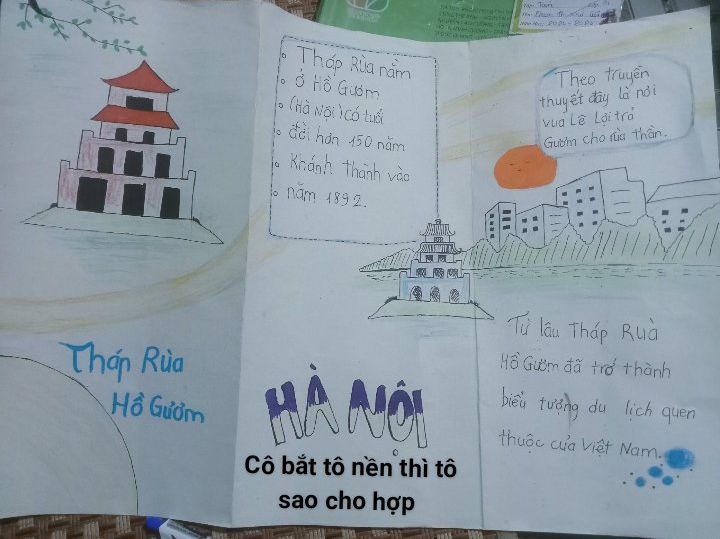 Tháp Rùa
Hồ Gươm
Tháp Rùa nằm
ở Hồ Gươm
(Hà Nội) có tuổi
đời hơn 150 năm
Khánh thành vào
năm 1892.
HÀ NỘI
Cô bắt tô nền thì tô
sao cho hợp
Theo truyền
thuyết đây là nơi
vua Lê Lợi trả
Gươm cho rùa thần.
Từ lâu Tháp Ruà
Hồ Gươm đã trở thành
biểu tượng du lịch quen
thuộc của Việt Nam.